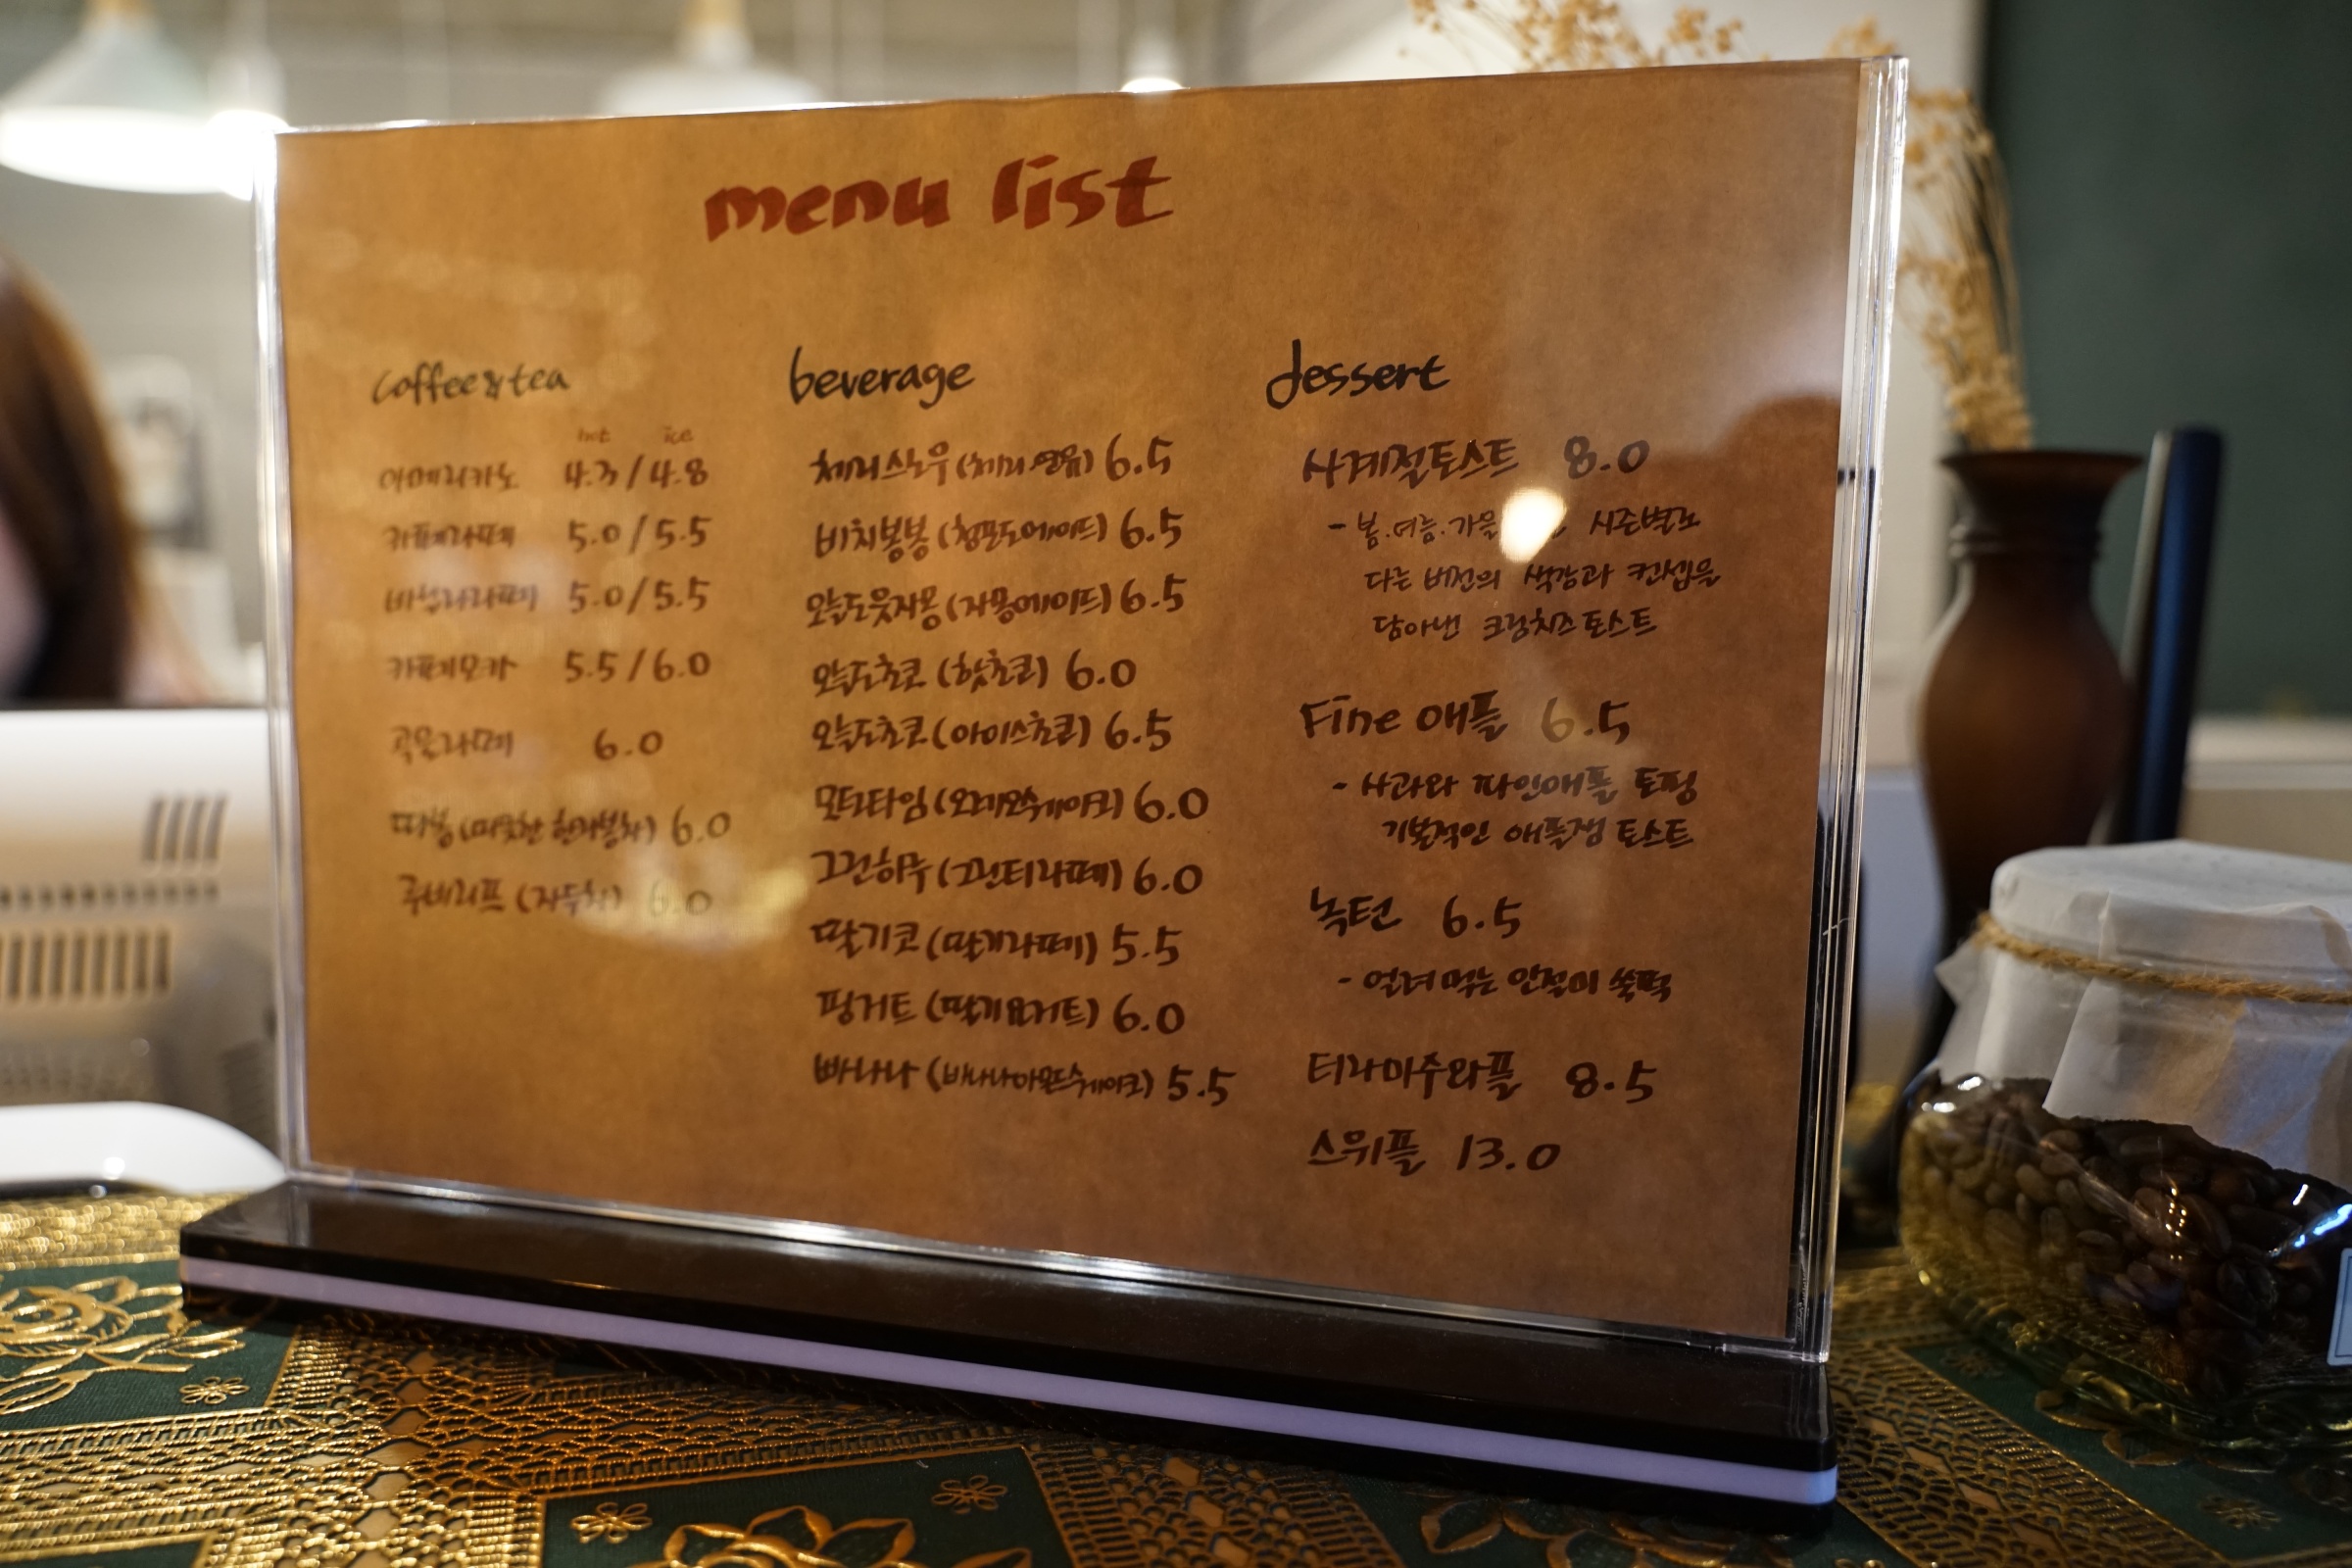 menu list
coffee&tea
hot ice
아메리카노 4.3/4.8
카페라떼 5.0/5.5
바닐라라떼 5.0/5.5
카페모카 5.5/6.0
곡물라떼 6.0
따봉(따뜻한 한라봉차) 6.0
루비리프 (자두차) 6.0
beverage
체리스노우 (체리.우유) 6.5
비치봉봉 (청포도에이드) 6.5
오늘도웃자몽 (자몽에이드) 6.5
오늘도초코 (핫초코) 6.0
오늘도초코 (아이스초코) 6.5
모티타임 (오레오쉐이크) 6.0
그린하루 (그린티라떼) 6.0
딸기코 (딸기라떼) 5.5
핑거트 (딸기요거트) 6.0
빠나나 (바나나아몬드쉐이크) 5.5
dessert
사계절토스트 8.0
- 봄.여름.가을 시즌별로
다른 버전의 색감과 컨셉을
담아낸 크림치즈토스트
Fine 애플 6.5
- 사과와 파인애플 토핑
기본적인 애플잼 토스트
녹턴 6.5
- 얼려 먹는 인절미 쑥떡
티라미수와플 8.5
스위플 13.0